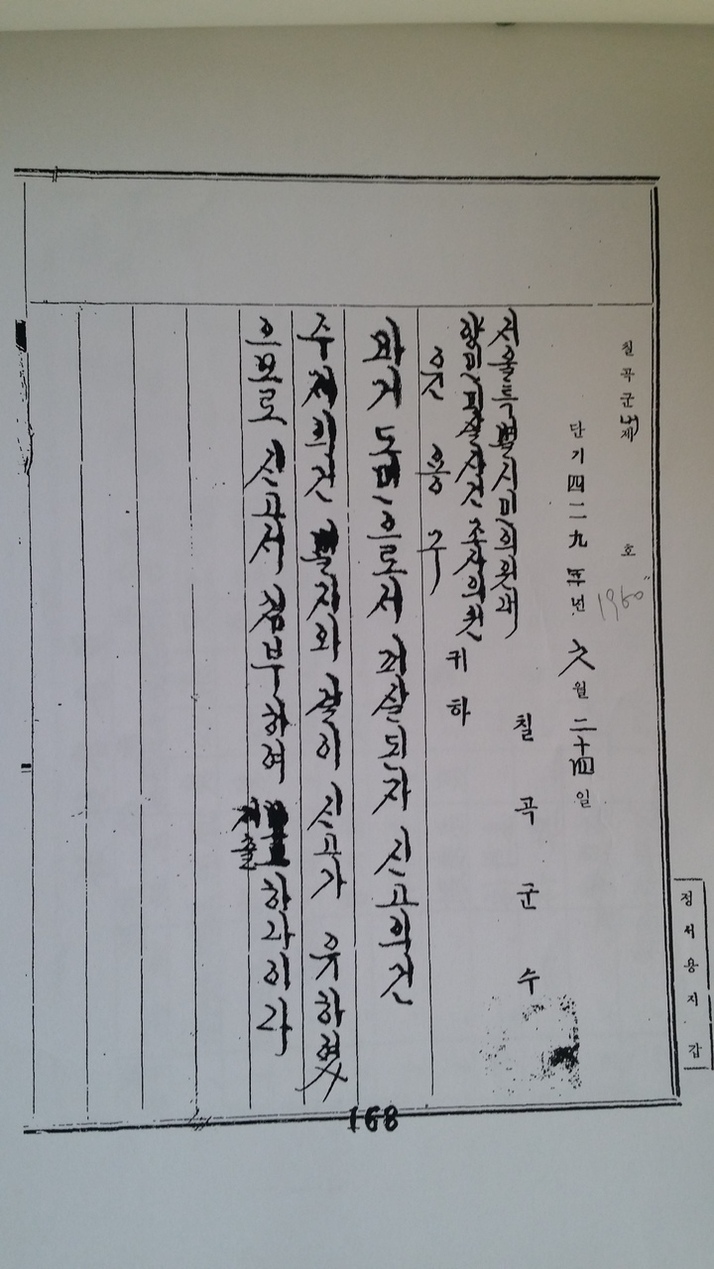 정서용지 갑
칠곡군 내 제 호
단기四二九三년 六월 二十四일
1960
칠곡군수
서울특별시 민의원내
양민피살사건 조사의원
윤용구 귀하
과거 도민으로서 피살된자 신고의건
수제의건 별지와 같이 신고가 유하였
으므로 신고서 첨부하여 제출 하나이다
168